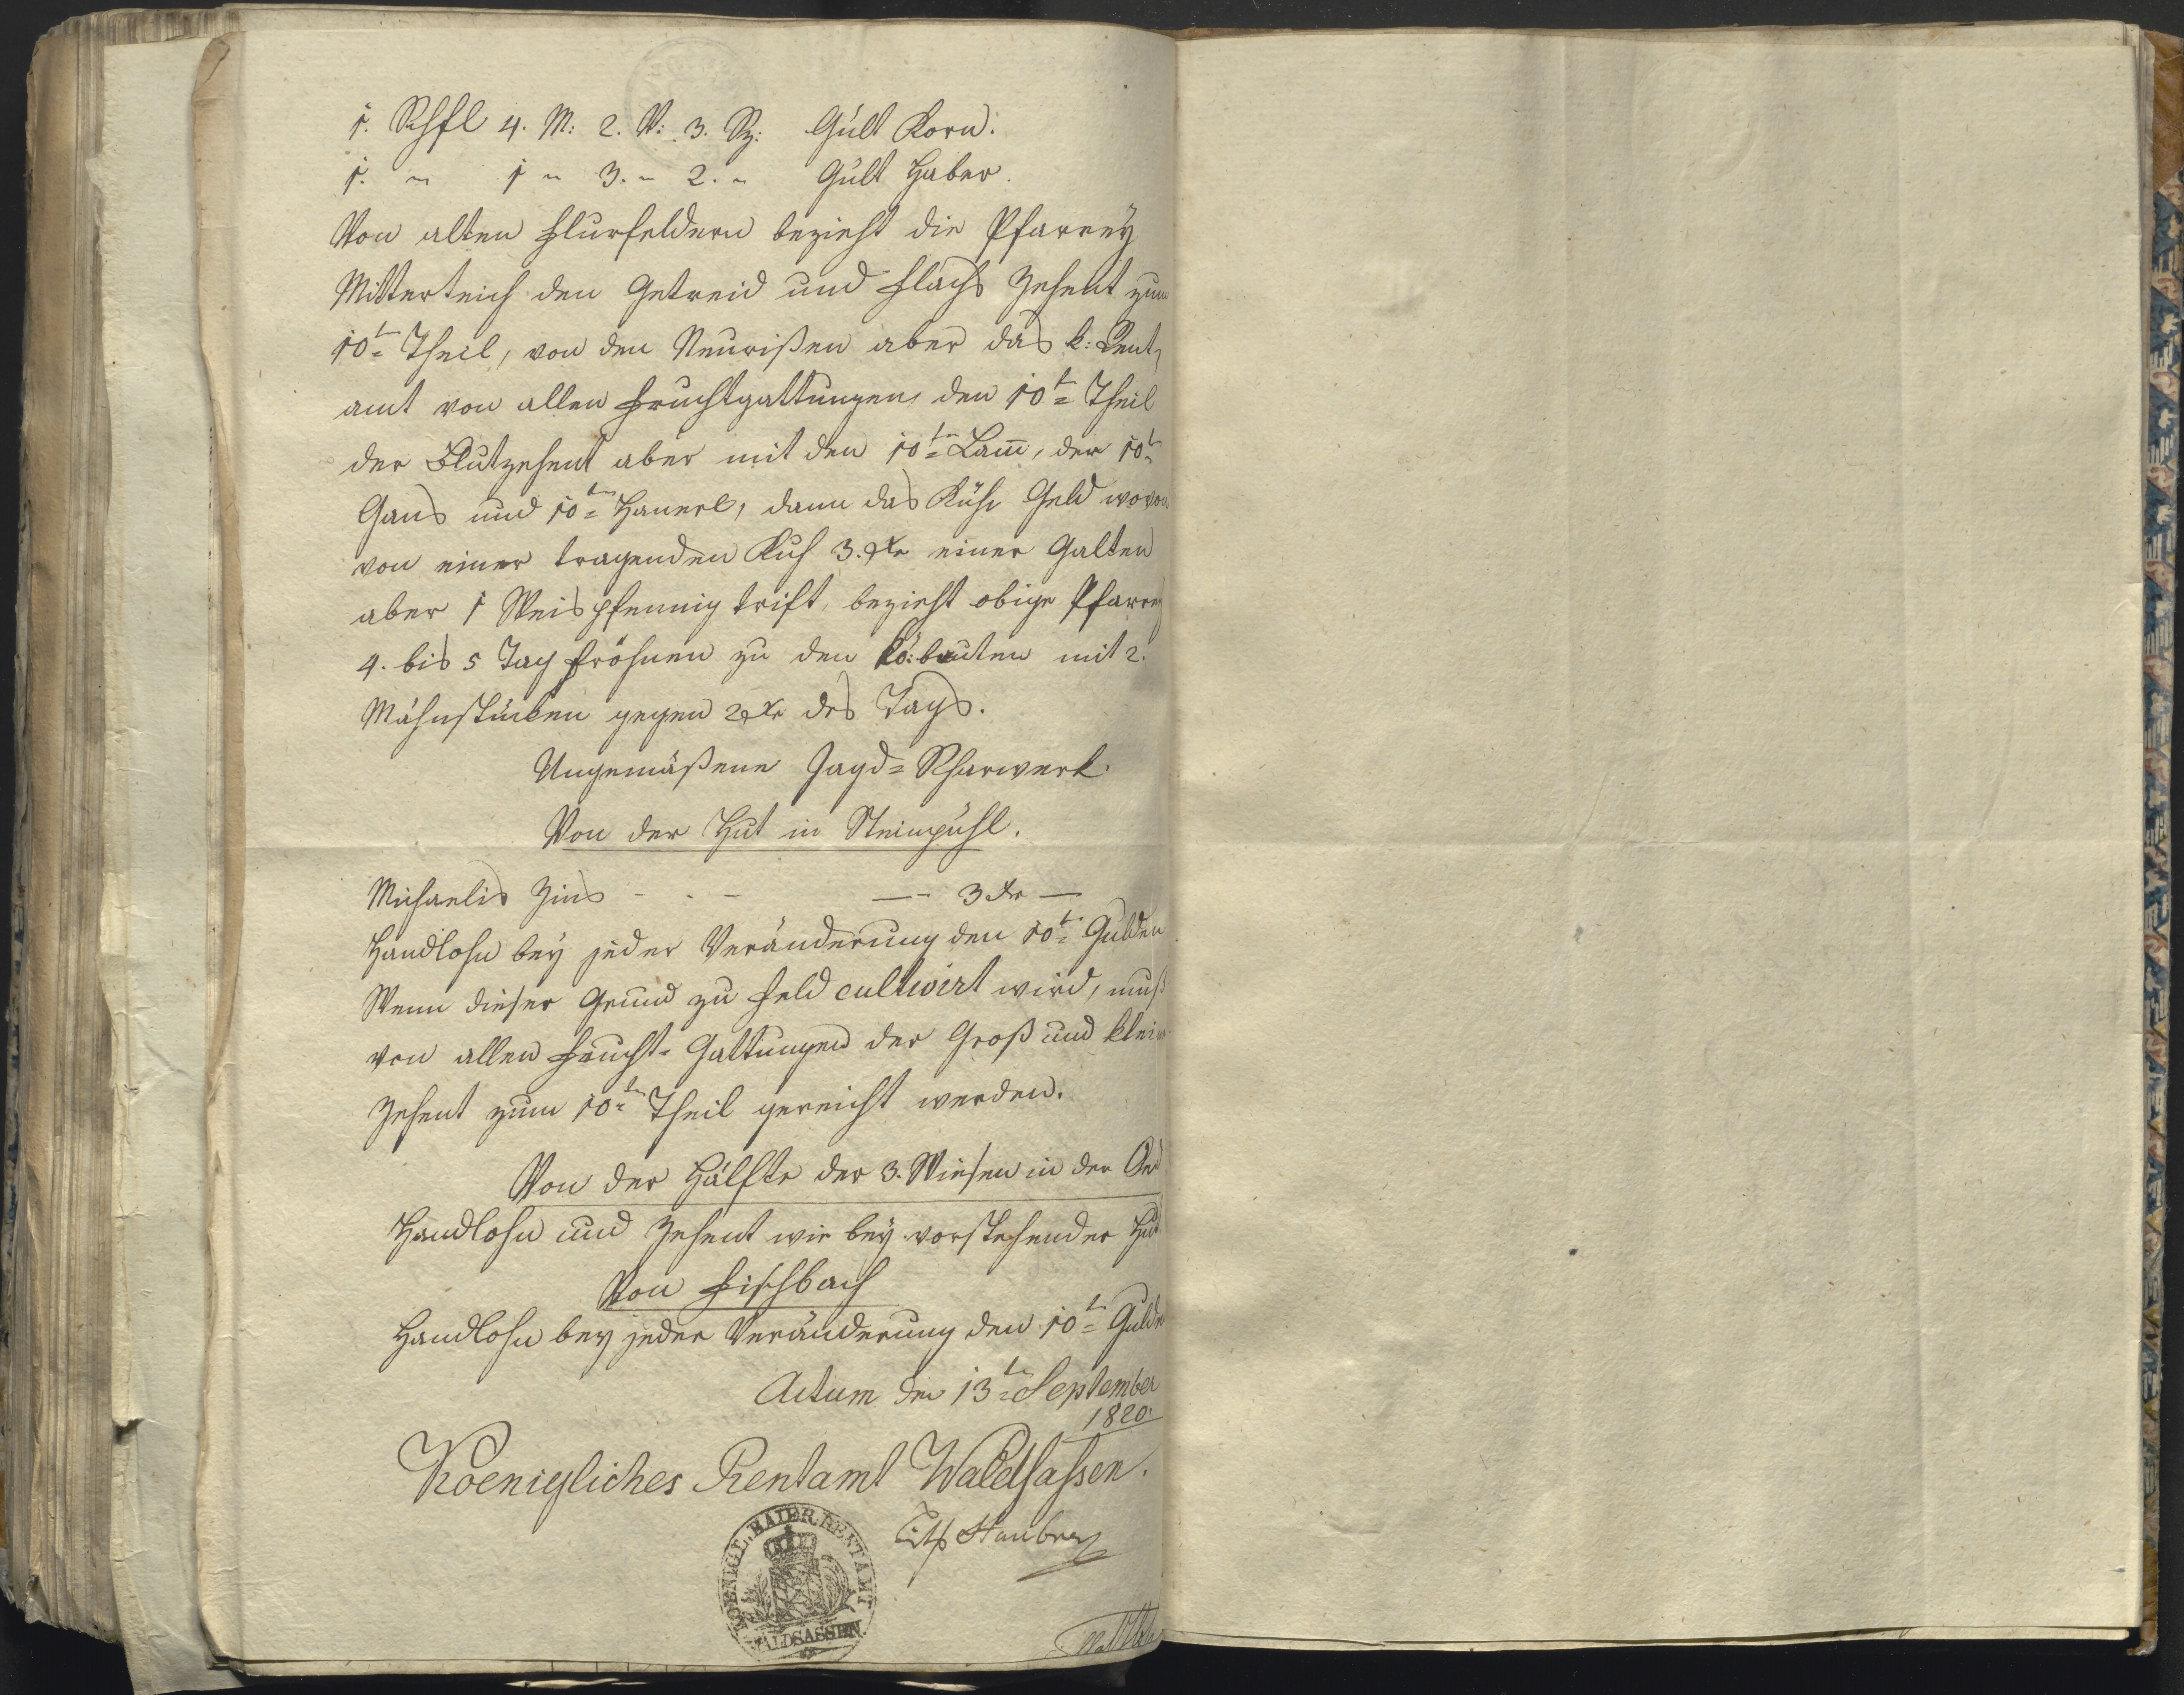 1. Schfl 4. M: 2. V: 3. Sz: Gült Korn.
1. " 1 " 3. " 2. " Gült Haber.
Von alten Flurfeldern bezieht die Pfarreÿ
Mitterteich den Getreid und Flachs Zehent zum
10t= Theil, von den Neurißen aber das k: Rent¬
amt von allen Fruchtgattungen den 10t= Theil
der Blutzehent aber mit den 10tn= Lam̅, der 10t=
Gans und 10tn= Hanerl, dann das Kühe Geld wovon
von einer tragenden Kuh 3. xr einer Galten
aber 1 Weispfennig trift, bezieht obige Pfarreÿ
4. bis 5 Tag fröhnen zu den kö: bauten mit 2.
Mähnstücken gegen 2 xr des Tags.
Ungemäßene Jagd= Scharwerk.
Von der Hut in Steinpühl.
Michaelis Zins - - - — 3 xr —
Handlohn beÿ jeder Veränderung den 10t= Gulden
Wenn dieser Grund zu Feld cultivirt wird, muß
von allen Frucht= Gattungen der Groß und klein
Zehent zum 10tn= Theil gereicht werden.
Von der Hälfte der 3. Wiesen in der Oed
Handlohn und Zehent wie beÿ vorstehender Hut
Von Fischbach
Handlohn beÿ jeder Veränderung den 10t= Gulden
Actum den 13tn= September
1820.
Koenigliches Rentamt Waldsassen.
Stauber
KOENIGL. BAIER. RENTAMT
WALDSASSEN